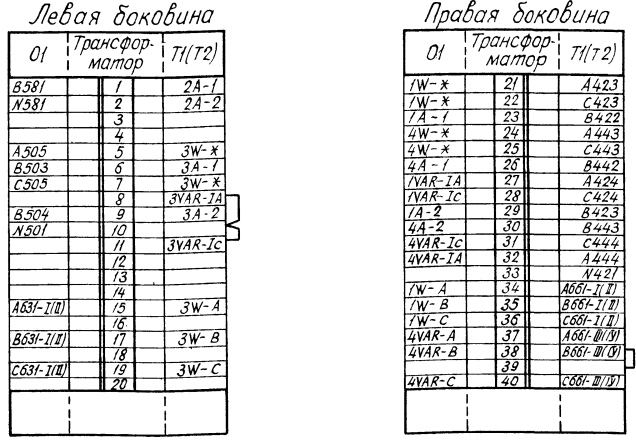 Левая боковина
01 Трансфор-матор Т1(Т2)
В581 1 2А-1
N581 2 2А-2
3
4
А505 5 3W-*
В503 6 3А-1
С505 7 3W-*
8 3VAR-IA
В504 9 3А-2
N501 10
11 3VAR-Ic
12
13
14
А631-I(II) 15 3W-A
16
В631-I(II) 17 3W-B
18
С631-I(II) 19 3W-C
20
Правая боковина
01 Трансфор-матор Т1(Т2)
1W-* 21 А423
1W-* 22 С423
1А-1 23 В422
4W-* 24 А443
4W-* 25 С443
4А-1 26 В442
1VAR-IA 27 А424
1VAR-Ic 28 С424
1А-2 29 В423
4А-2 30 В443
4VAR-Ic 31 С444
4VAR-IA 32 А444
33 N421
1W-A 34 А661-I(II)
1W-B 35 В661-I(II)
1W-C 36 С661-I(II)
4VAR-A 37 А661-III(IV)
4VAR-B 38 В661-III(IV)
39
4VAR-C 40 С661-III(IV)